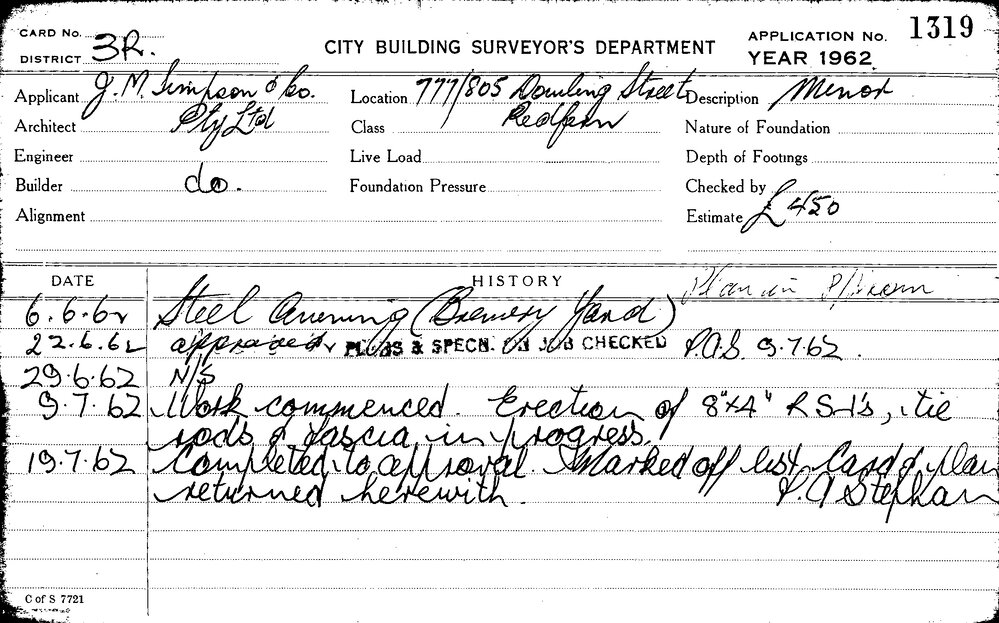 CARD No.
DISTRICT 3R.
CITY BUILDING SURVEYOR'S DEPARTMENT
APPLICATION No. 1319
YEAR 1962
Applicant J. M. Simpson & Co.
Location 777/805 Dowling Street
Description Minor
Architect Pty Ltd
Class Redfern
Nature of Foundation
Engineer
Live Load
Depth of Footings
Builder do.
Foundation Pressure
Checked by
Alignment
Estimate £450
DATE
HISTORY
Plan in
6.6.62 Steel Awning (Brewery Yard)
22.6.62 approved PLANS & SPECN. ON JOB CHECKED P.A.S. 9.7.62.
29.6.62 N/S
9.7.62 Work commenced. Erection of 8"x4" RSJ's, tie
rods & fascia in progress.
19.7.62 Completed to approval. Marked off list. Card & plan
returned herewith. P.A Stephan
C of S 7721